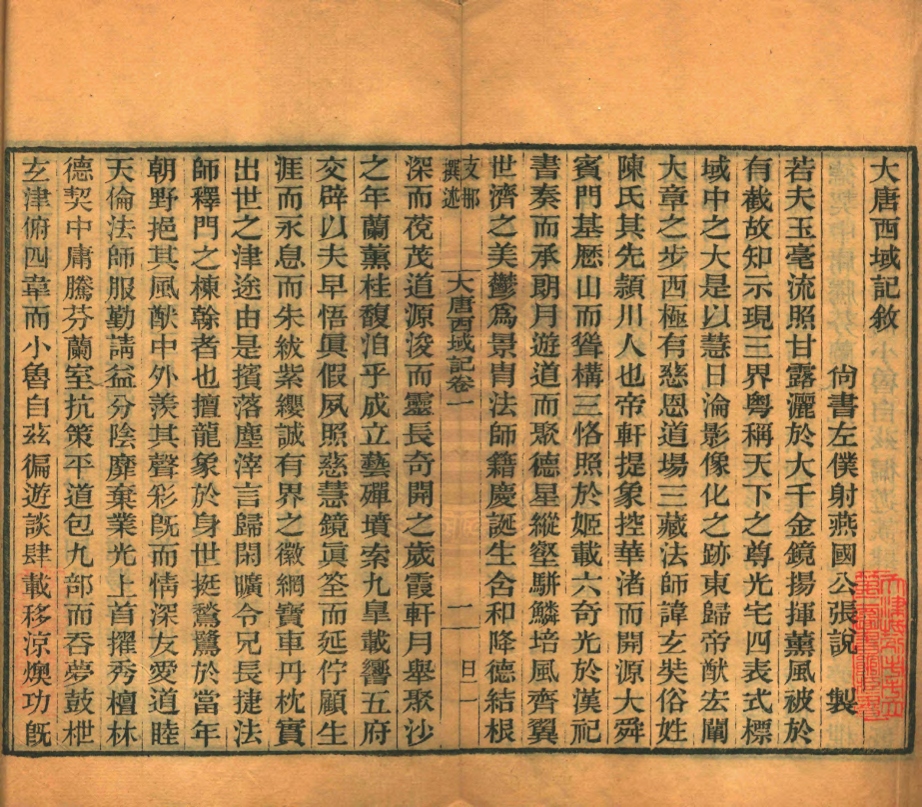 大唐西域記敘
尙書左僕射燕國公張說 製
若夫玉毫流照甘露灑於大千金鏡揚揮薰風被於
有截故知示現三界粵稱天下之尊光宅四表式標
域中之大是以慧日淪影像化之跡東歸帝猷宏闡
大章之步西極有慈恩道場三藏法師諱玄奘俗姓
陳氏其先潁川人也帝軒提象控華渚而開源大舜
賓門基歷山而聳構三恪照於姬載六奇光於漢祀
書奏而承朗月遊道而聚德星縱壑駢鱗培風齊翼
世濟之美鬱爲景胄法師籍慶誕生含和降德結根
支那
撰述
大唐西域記卷一
二
旦一
深而䓲茂道源浚而靈長奇開之歲霞軒月舉聚沙
之年蘭薰桂馥洎乎成立藝殫墳索九皐載響五府
交辟以夫早悟眞假夙照慈慧鏡眞筌而延佇顧生
涯而永息而朱紱紫纓誠有界之徽網寶車丹枕實
出世之津途由是擯落塵滓言歸閑曠令兄長捷法
師釋門之棟榦者也擅龍象於身世挺鶖鷺於當年
朝野挹其風猷中外羨其聲彩旣而情深友愛道睦
天倫法師服勤請益分陰靡棄業光上首擢秀檀林
德契中庸騰芬蘭室抗策平道包九部而吞夢鼓枻
玄津俯四韋而小魯自茲徧遊談肆載移涼燠功旣